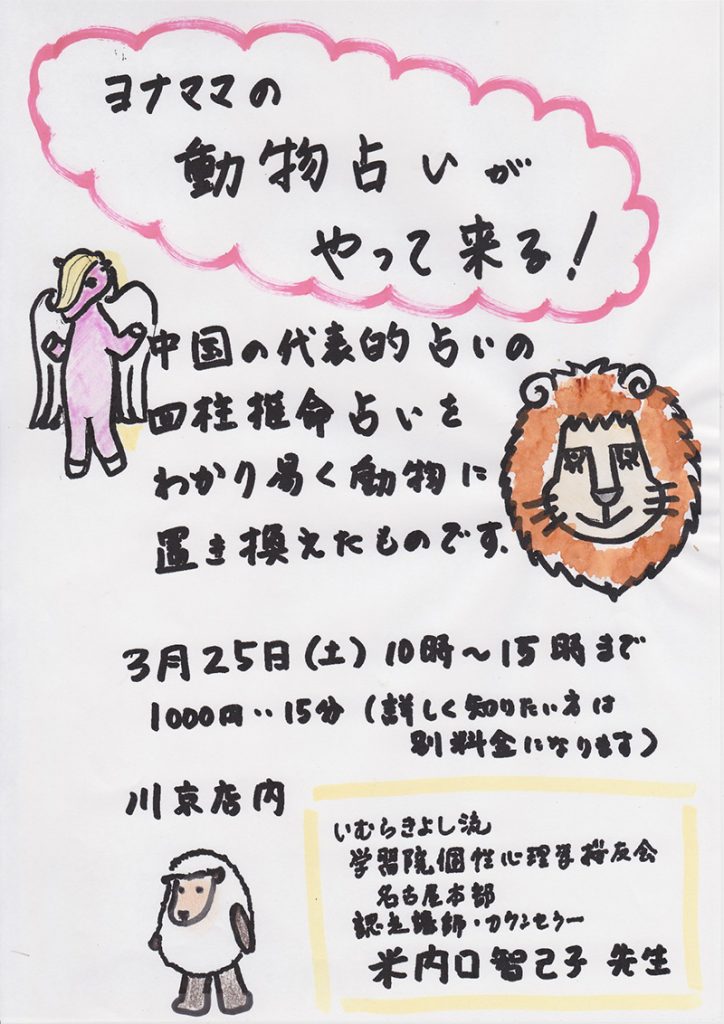 ヨナママの
動物占いが
やって来る!
中国の代表的占いの
四柱推命占いを
わかり易く動物に
置き換えたものです.
3月25日(土)10時~15時まで
1000円‥15分(詳しく知りたい方は
別料金になります)
川京店内
いむらきよし流
学習院個性心理学桜友会
名古屋本部
認定講師・カウンセラー
米内口智己子 先生